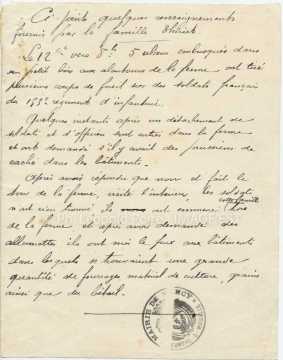 Ci joint quelques renseignements
fournis par la famille Thiriet
Le 12 vers 8h 5 uhlans embusqués dans
un petit bois aux alentours de la ferme ont tiré
plusieurs coups de fusil sur des soldats français
du 153e régiment d'infanterie.
Quelques instants après un détachement de
soldats et d'officiers sont entrés dans la ferme
et ont demandé s'il y avait des prussiens de
caché dans les bâtiments.
Après avoir répondu que non et fait le
tour de la ferme, visité l'intérieur, les soldats
n'ont rien trouvé ils ont
de la ferme et après avoir demandé des
allumettes ils ont mis le feu aux bâtiments
dans lesquels se trouvaient une grande
quantité de fourrages matériel de culture, grains
ainsi que du bétail.
MAIRIE DE